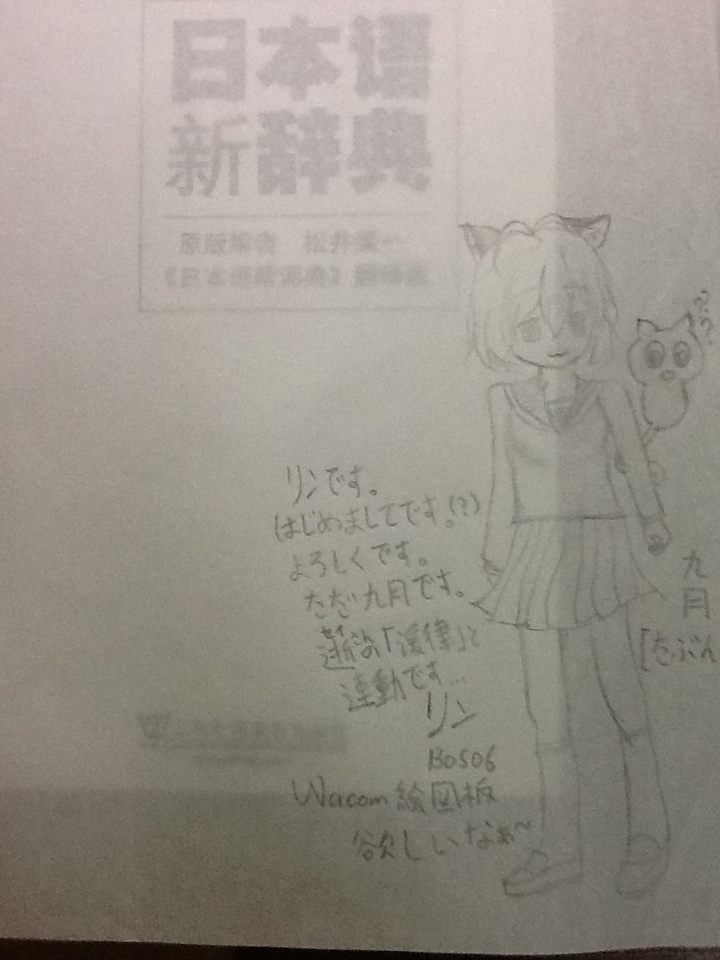 日本语
新辞典
原版编者 松井荣一
《日本语新辞典》
??
リンです。
はじめましてです。(?)
よろしくです。
ただ九月です。
の「渓律」と
連動です…
リン
BOS06
Wacom 絵図板
欲しいなぁ~
九
月
[たぶん